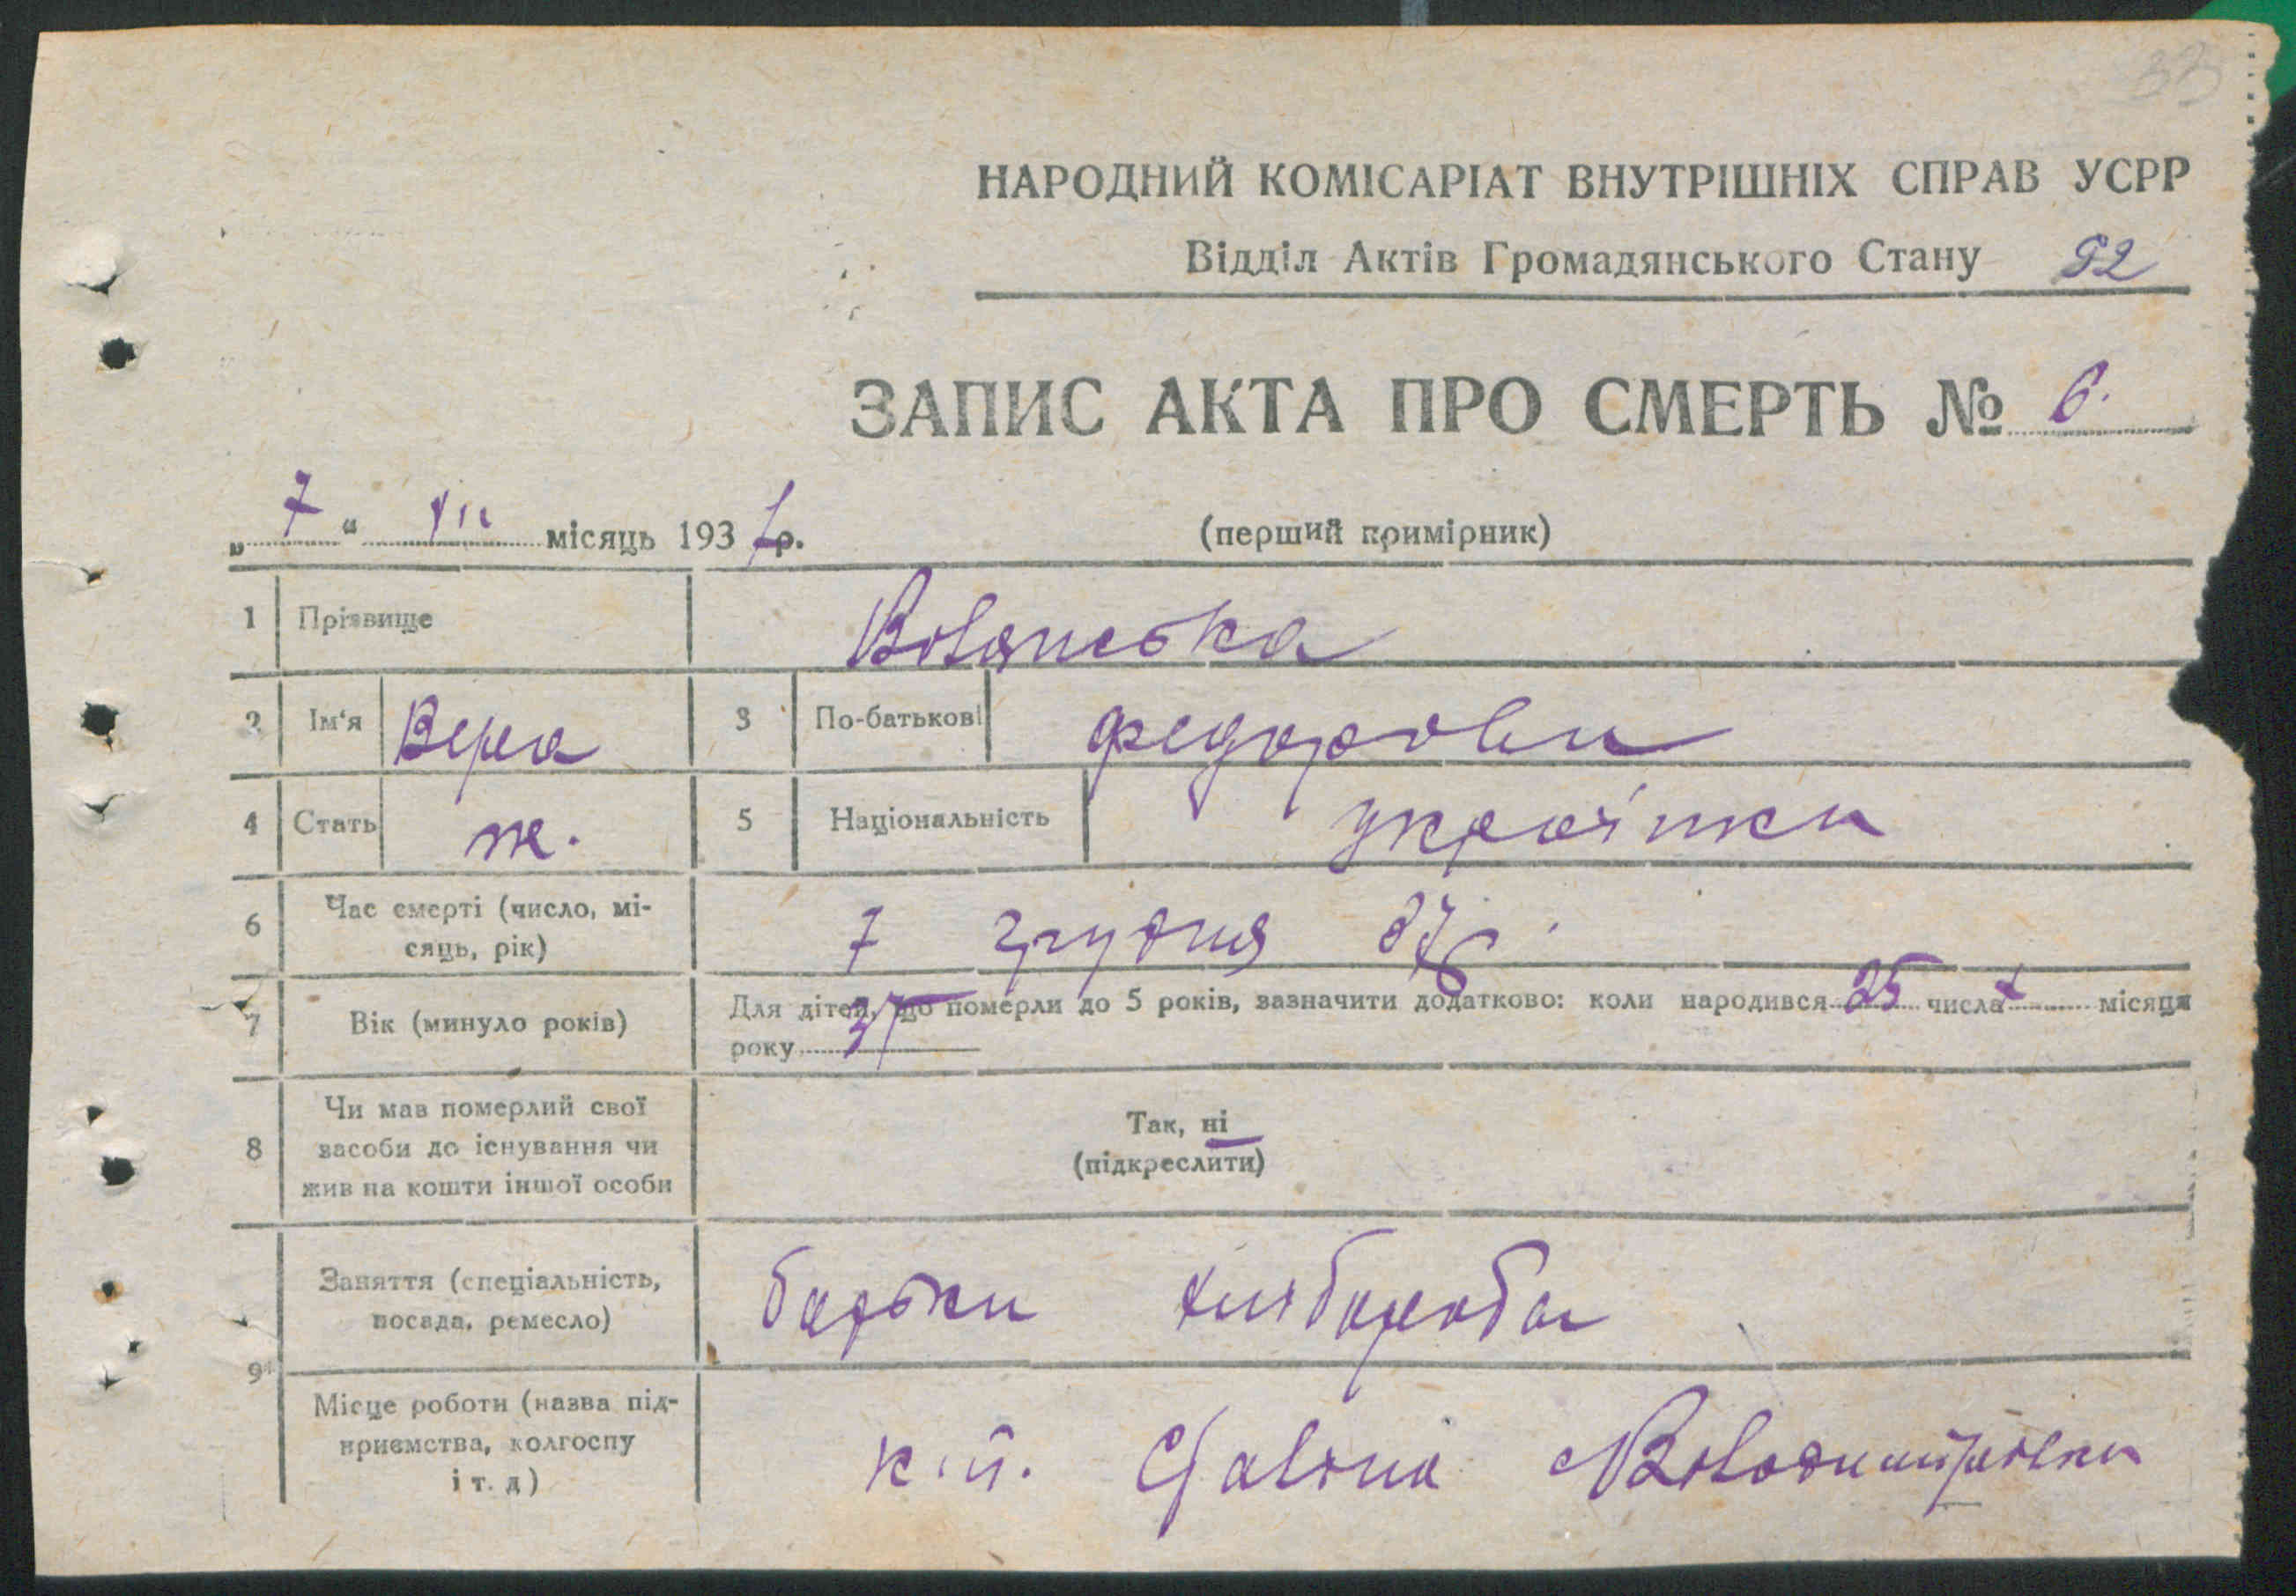 33
НАРОДНИЙ КОМІСАРІАТ ВНУТРІШНІХ СПРАВ УСРР
Відділ Актів Громадянського Стану 52
ЗАПИС АКТА ПРО СМЕРТЬ № 6.
„ 7 “ XII місяць 1937 р. (перший примірник)
1 Прізвище Волянська
2 Ім‘я Вера 3 По-батькові Федоровна
4 Стать ж. 5 Національність українка
6 Час смерті (число, місяць, рік) 7 грудня 37 р.
7 Вік (минуло років) Для дітей, що померли до 5 років, зазначити додатково: коли народився 25 числа місяця
року 37
8 Чи мав померлий свої
засоби до існування чи
жив на кошти іншої особи
Так, ні
(підкреслити)
9 Заняття (спеціальність,
посада, ремесло)
батьки хлібороби
Місце роботи (назва під-
приємства, колгоспу
і т. д)
к.п.